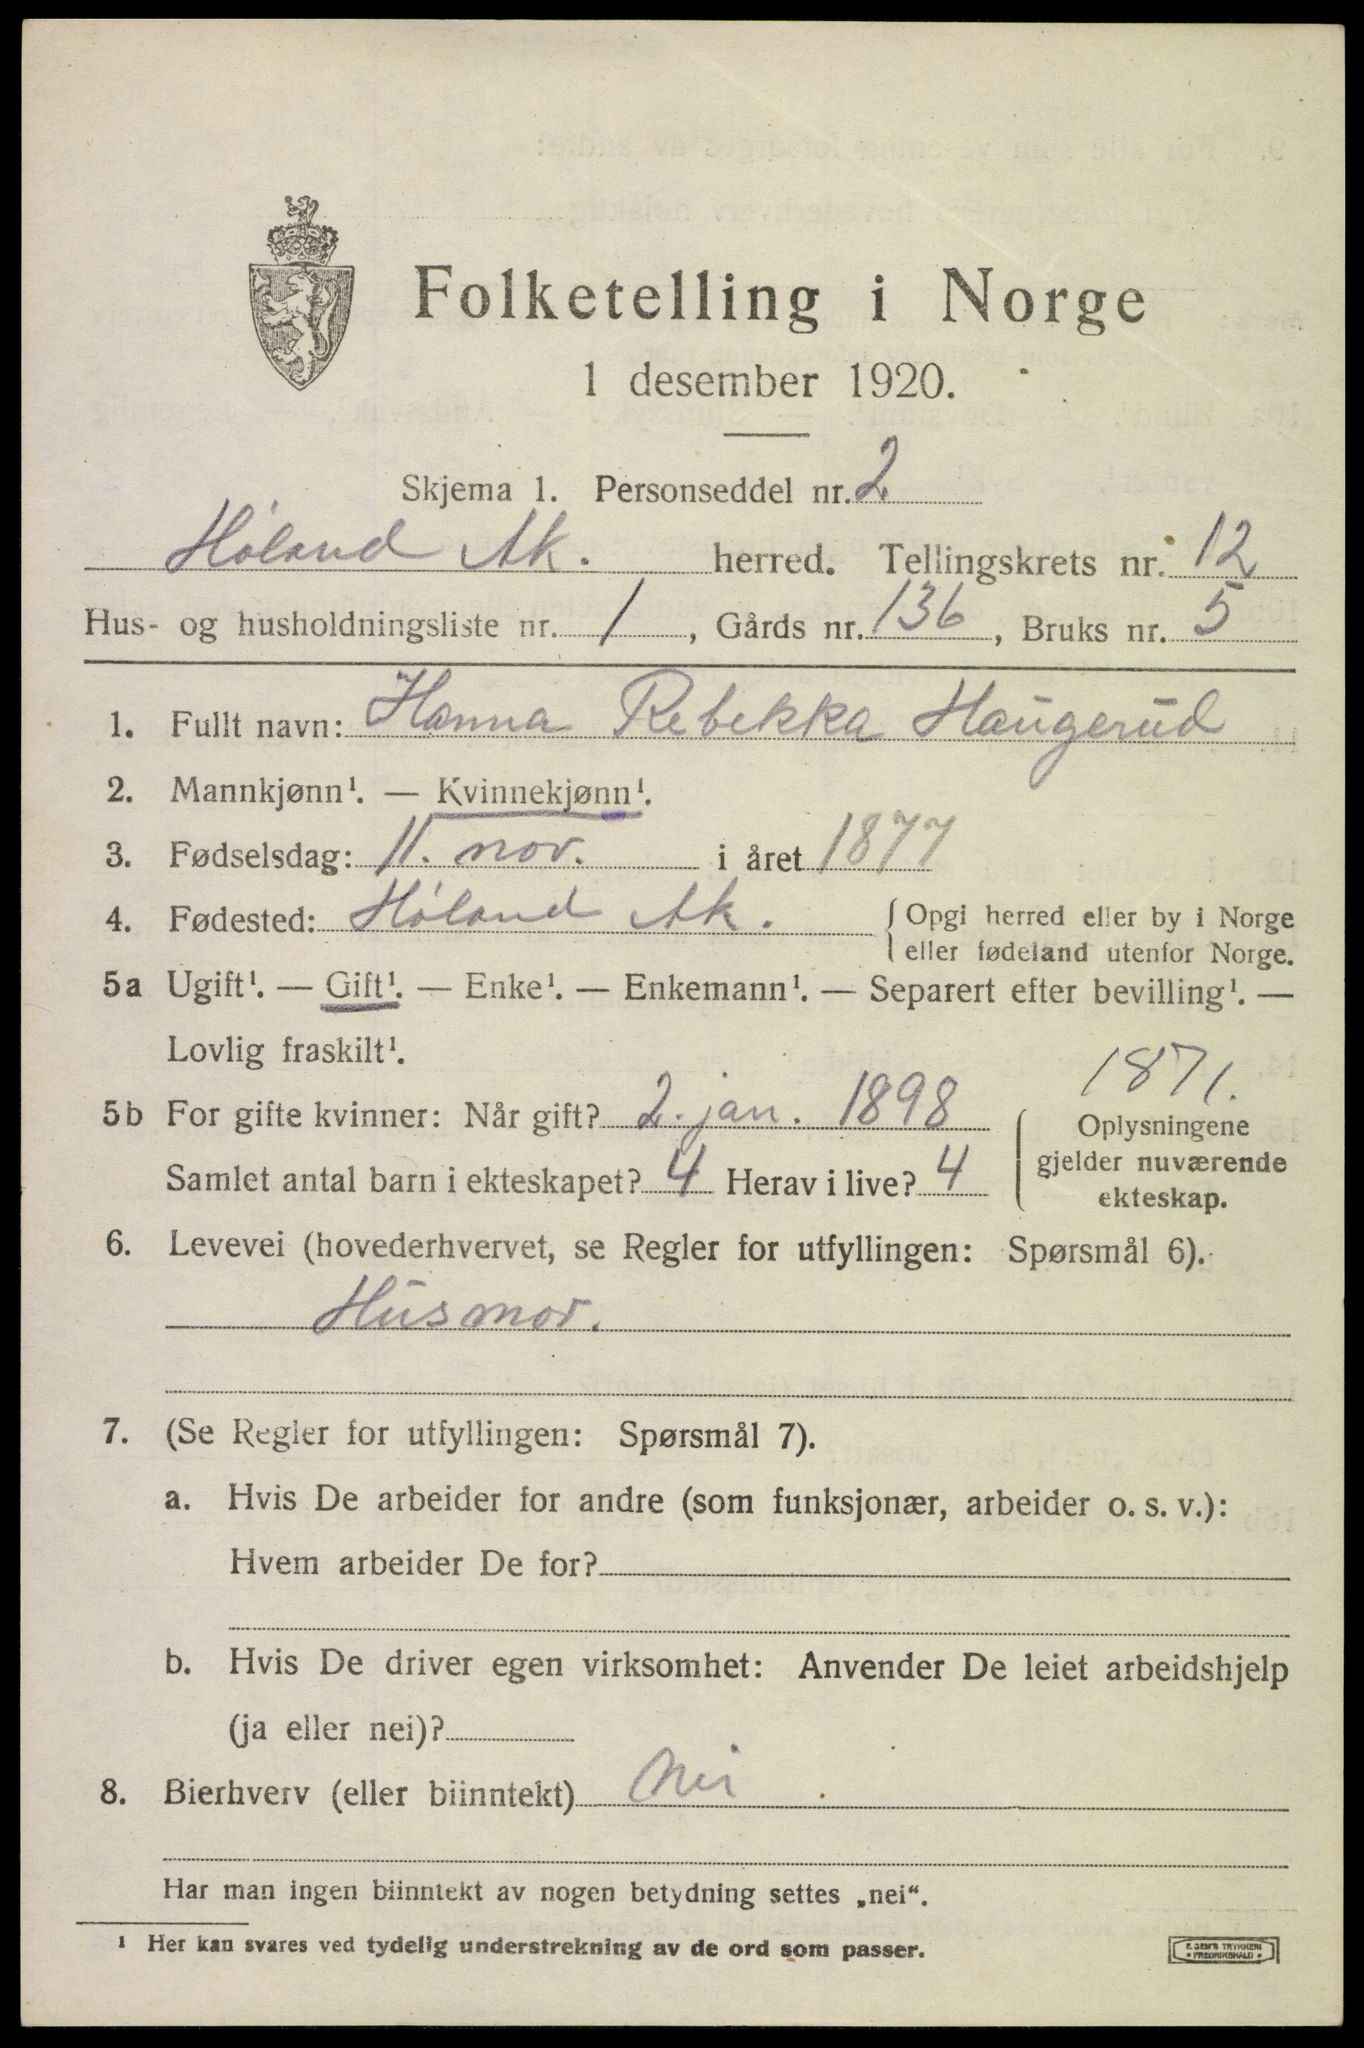 Folketelling i Norge
1 desember 1920.
Skjema 1. Personseddel nr. 2
Høland Ak. herred. Tellingskrets nr. 12
Hus- og husholdningsliste nr. 1, Gårds nr. 136, Bruks nr. 5
1. Fullt navn: Hanna Rebekka Haugerud
2. Mannkjønn¹. — Kvinnekjønn¹.
3. Fødselsdag: 11. nov. i året 1877
4. Fødested: Høland Ak. { Opgi herred eller by i Norge
eller fødeland utenfor Norge.
5a Ugift¹. — Gift¹. — Enke¹. — Enkemann¹. — Separert efter bevilling¹. —
Lovlig fraskilt¹.
1871.
5b For gifte kvinner: Når gift? 2. jan. 1898 { Oplysningene
gjelder nuværende
Samlet antal barn i ekteskapet? 4 Herav i live? 4
ekteskap.
6. Levevei (hovederhvervet, se Regler for utfyllingen: Spørsmål 6).
Husmor.
7. (Se Regler for utfyllingen: Spørsmål 7).
a. Hvis De arbeider for andre (som funksjonær, arbeider o. s. v.):
Hvem arbeider De for?
b. Hvis De driver egen virksomhet: Anvender De leiet arbeidshjelp
(ja eller nei)?
8. Bierhverv (eller biinntekt) Nei
Har man ingen biinntekt av nogen betydning settes „nei“.
¹ Her kan svares ved tydelig understrekning av de ord som passer.
E. SEM'S TRYKKERI
• FREDRIKSHALD •